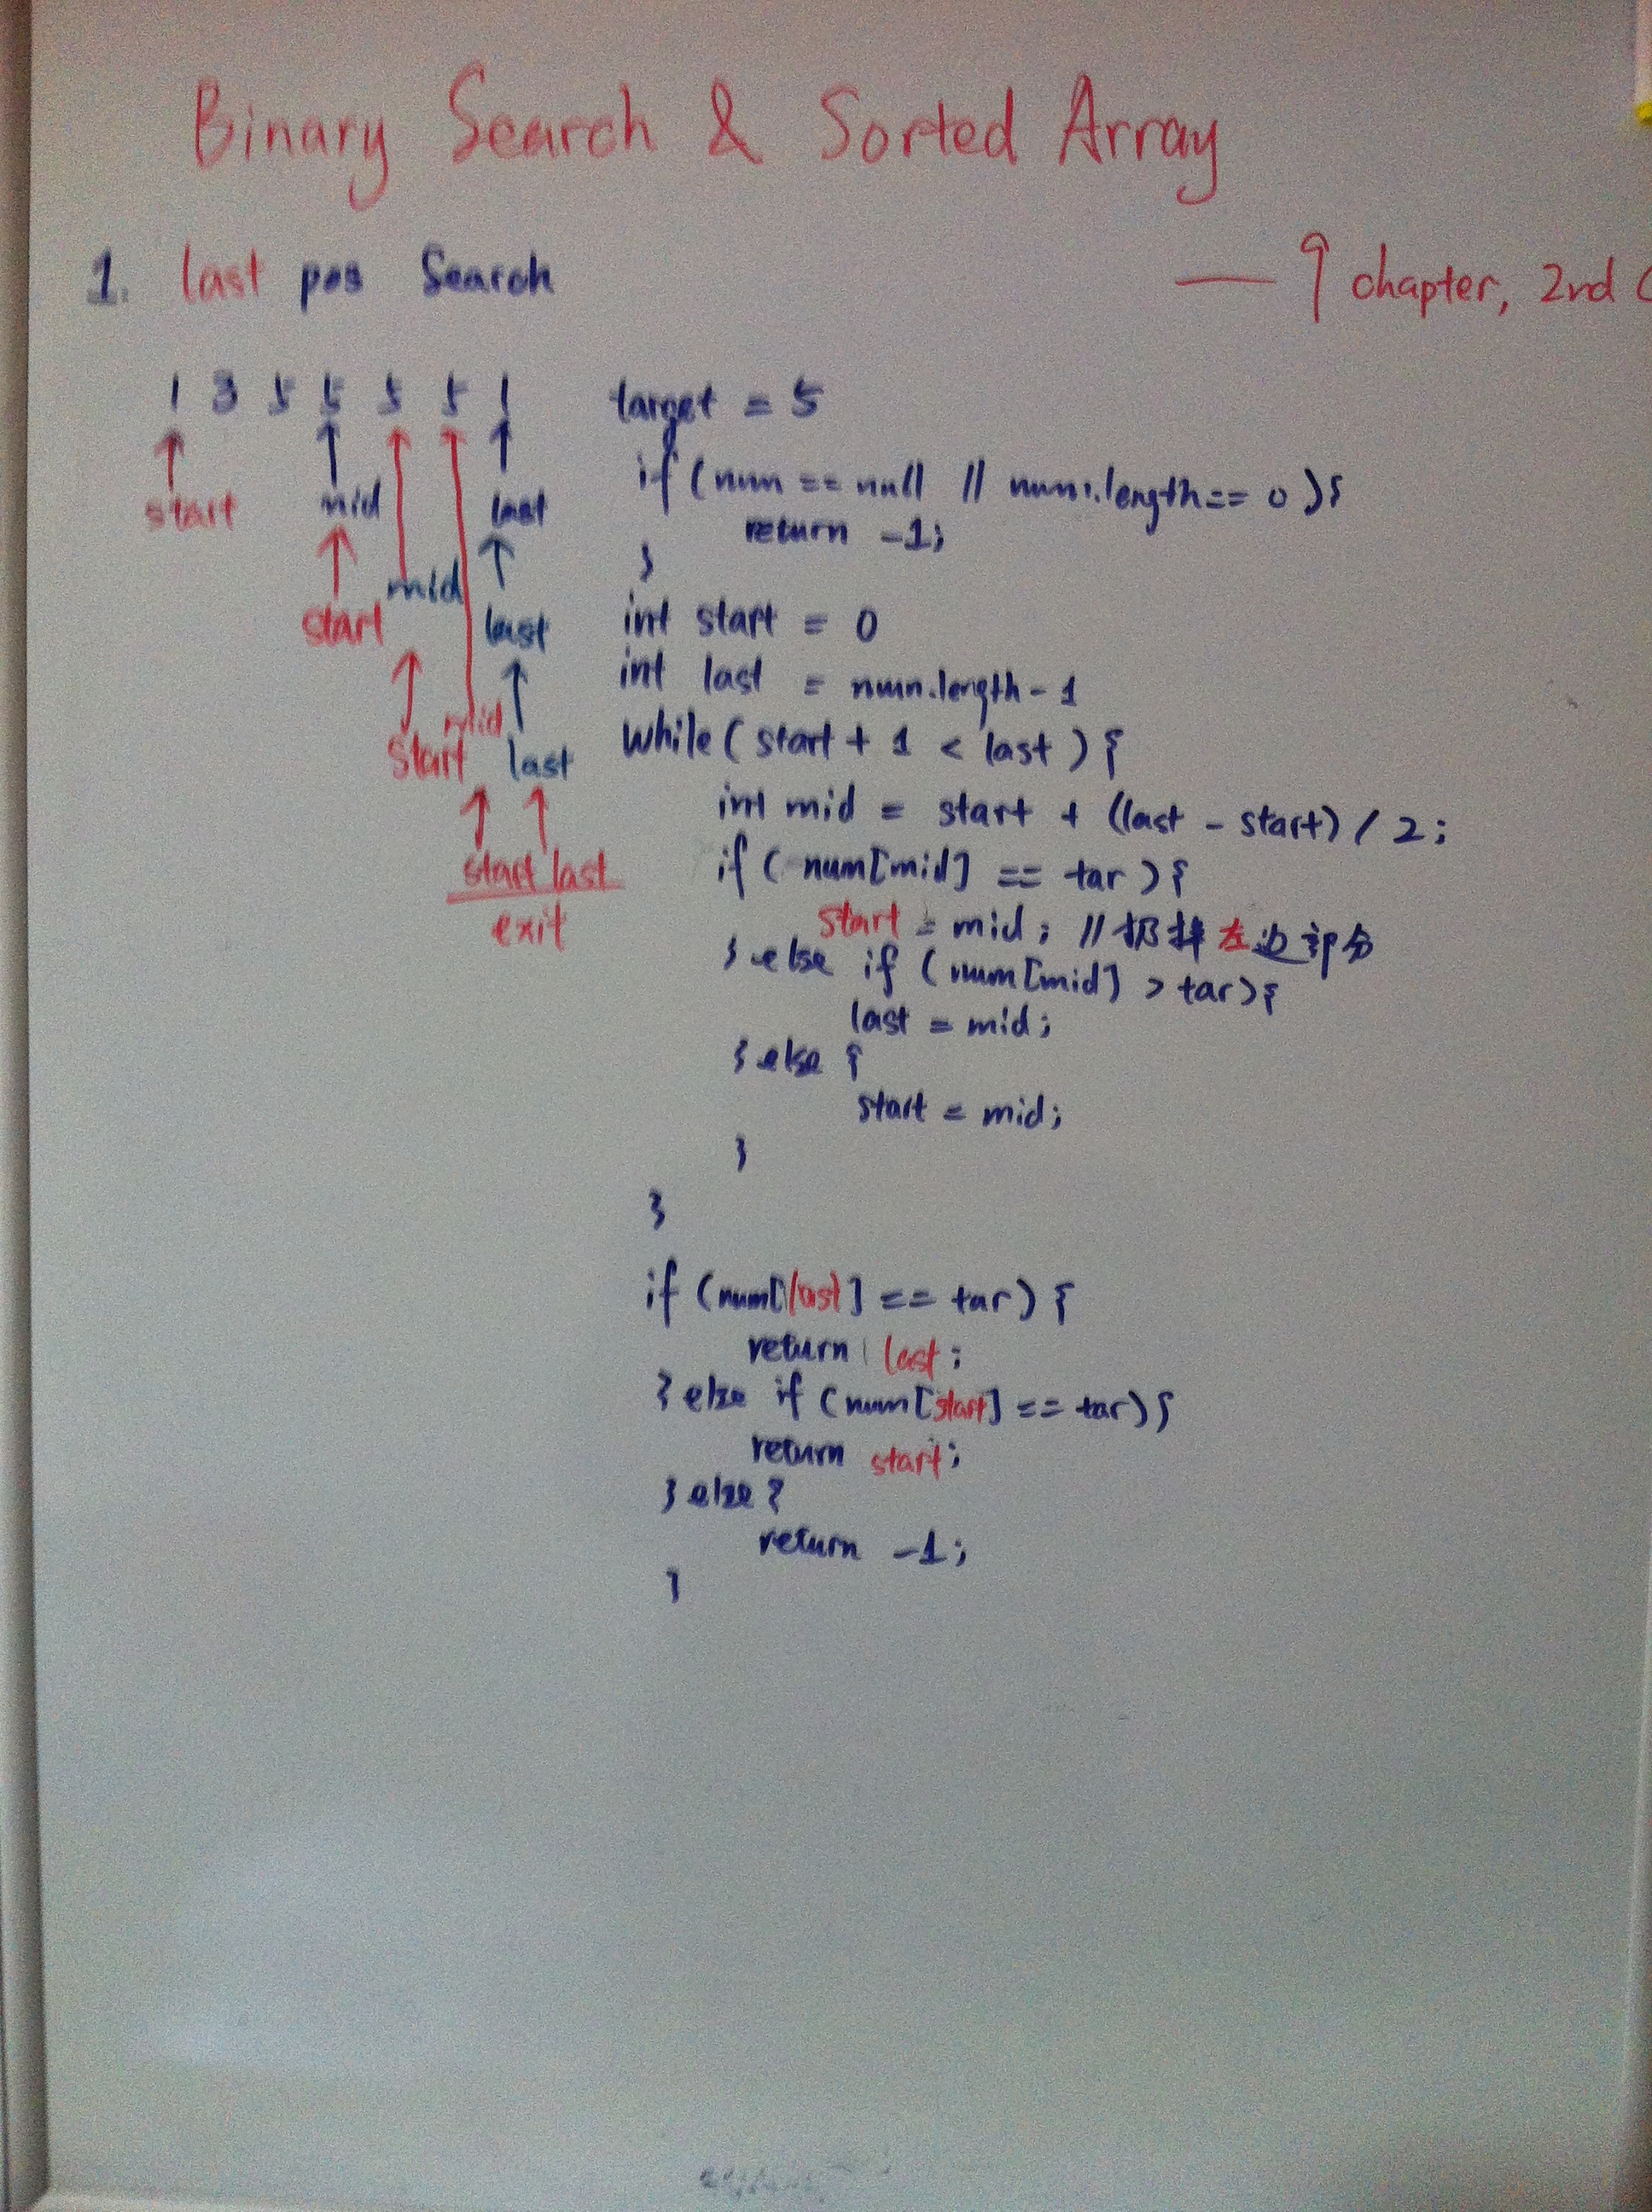 Binary Search & Sorted Array
1. last pos Search
— 9 chapter, 2nd C
1 3 5 5 5 5 1
target = 5
start mid last
start mid last
start mid last
start last
exit
if (num == null || num.length == 0){
return -1;
}
int start = 0
int last = num.length - 1
while (start + 1 < last) {
int mid = start + ((last - start) / 2;
if (num[mid] == tar) {
start = mid; // 扔掉左边部分
} else if (num[mid] > tar){
last = mid;
} else {
start = mid;
}
}
if (num[last] == tar) {
return last;
} else if (num[start] == tar){
return start;
} else {
return -1;
}